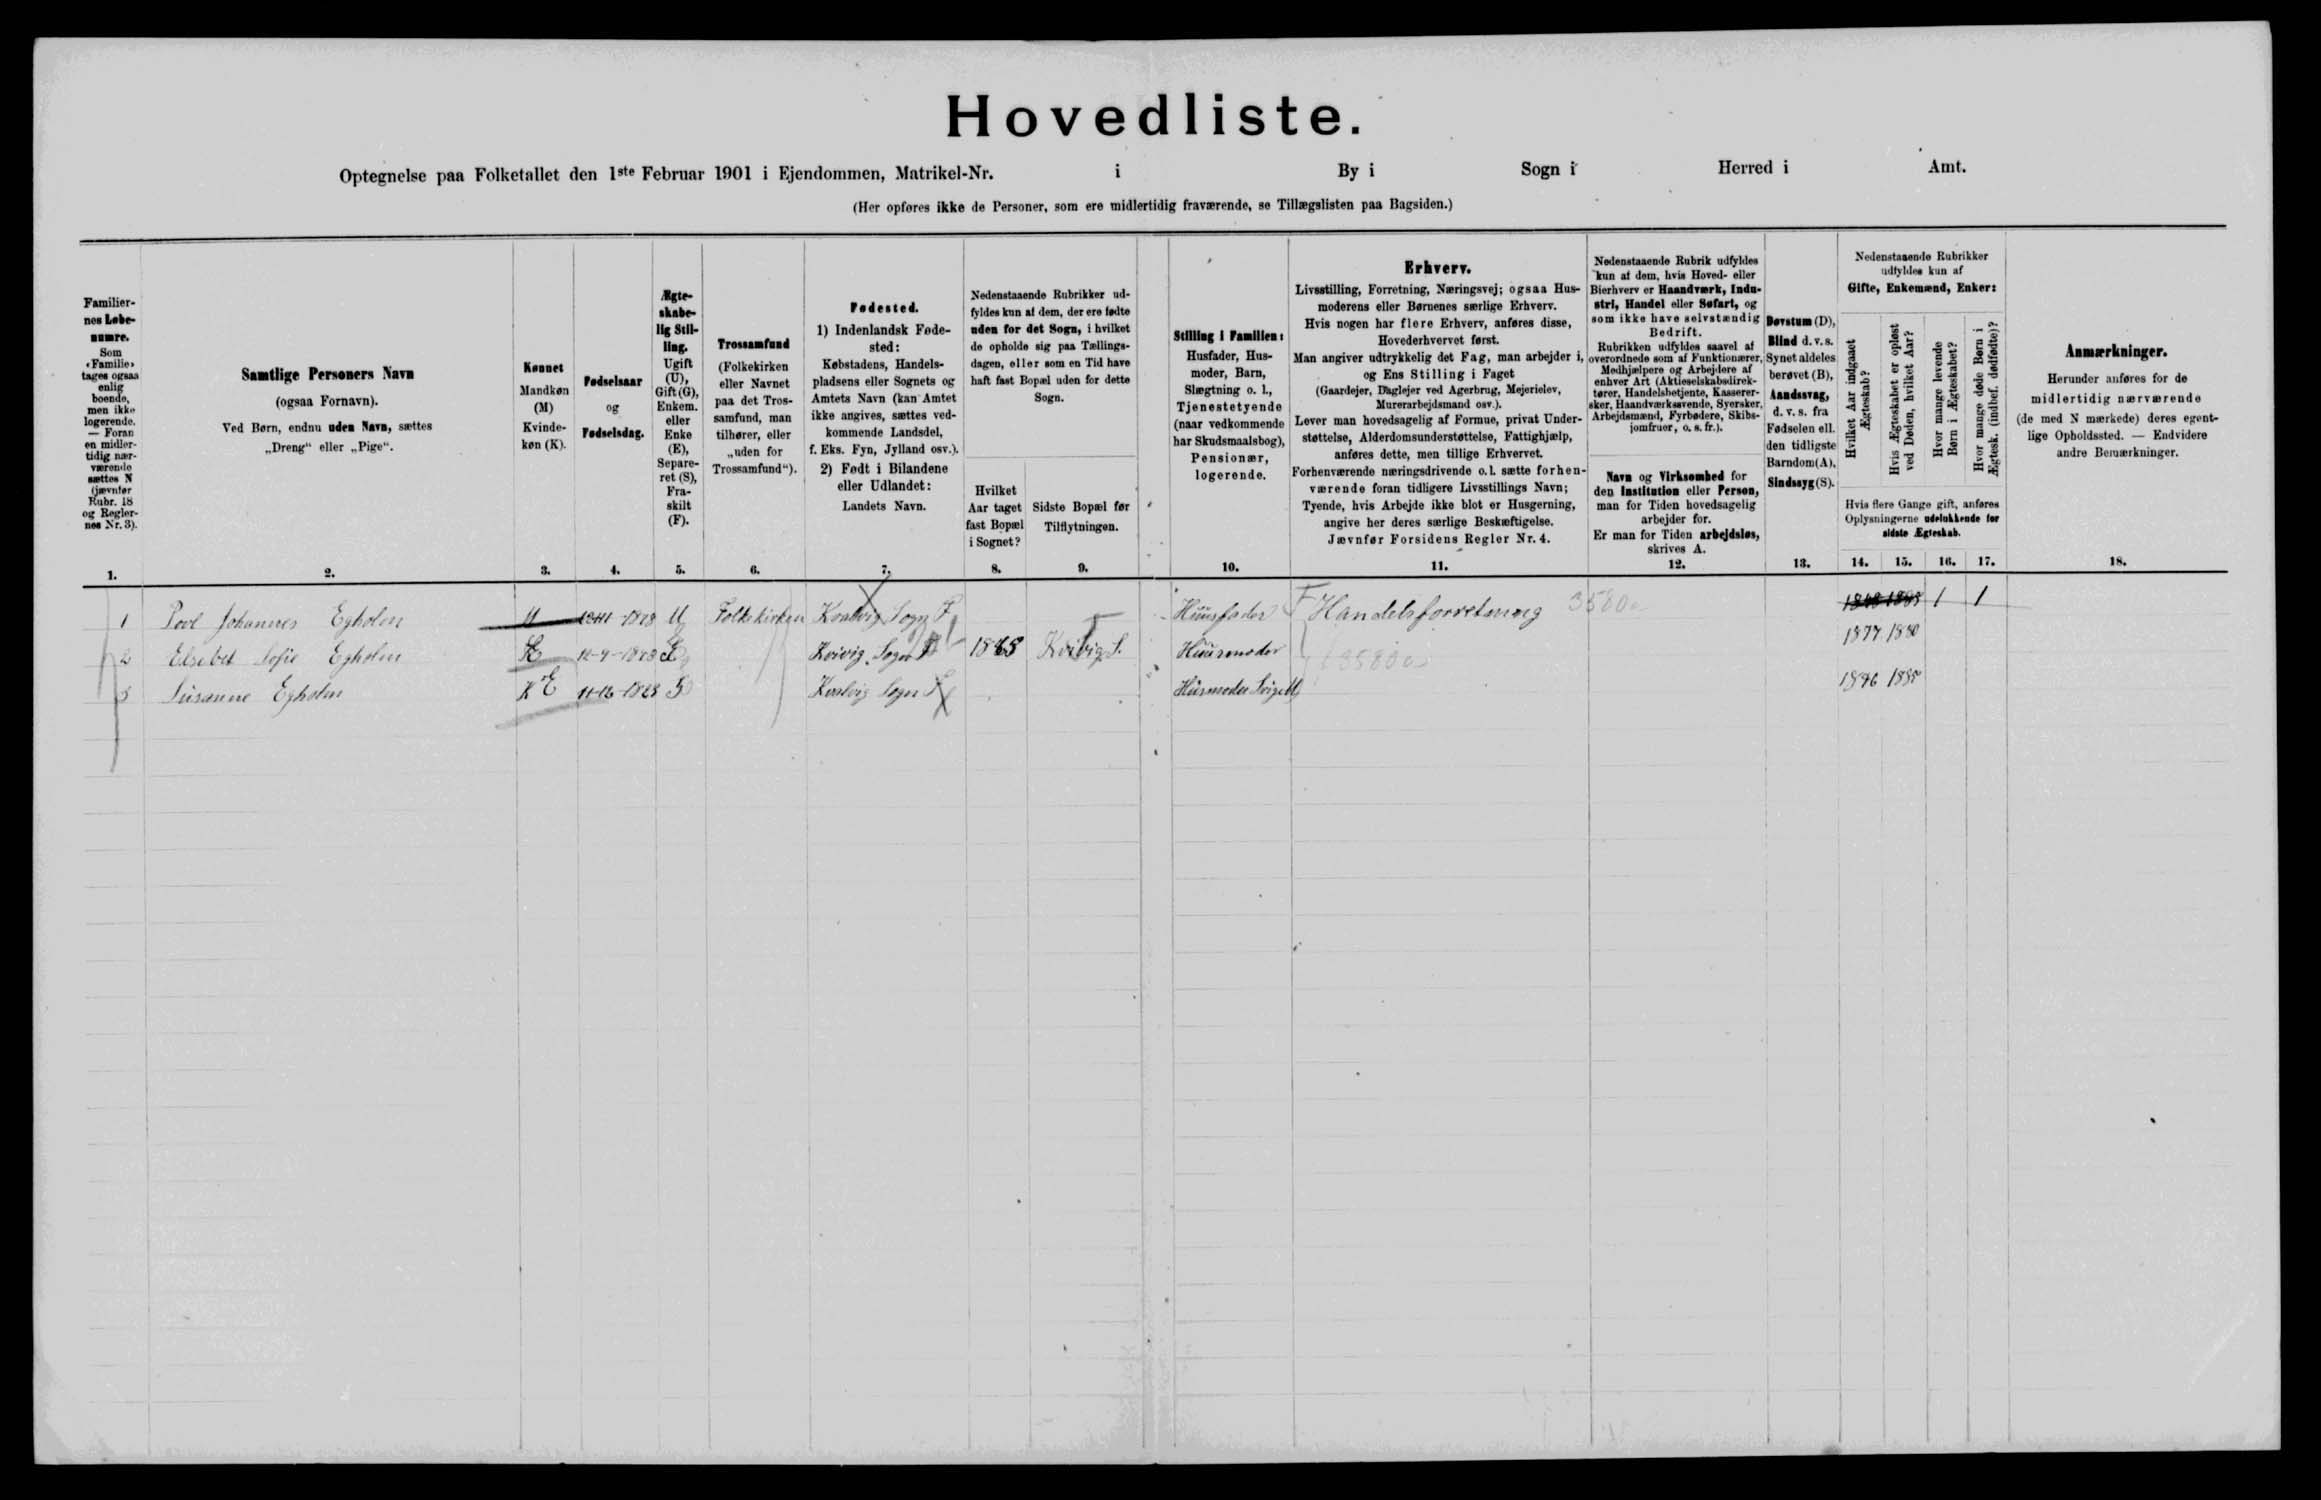 Hovedliste.
Optegnelse paa Folketallet den 1ste Februar 1901 i Ejendommen, Matrikel-Nr. i By i Sogn i Herred i Amt.
(Her opføres ikke de Personer, som ere midlertidig fraværende, se Tillægslisten paa Bagsiden.)
Familier-
nes Løbe-
numre.
Som
«Familie»
tages ogsaa
enlig
boende,
men ikke
logerende.
— Foran
en midler-
tidig nær-
værende
sættes N
(jævnfør
Rubr. 18
og Regler-
nes Nr. 3).
1.
Samtlige Personers Navn
(ogsaa Fornavn).
Ved Børn, endnu uden Navn, sættes
„Dreng“ eller „Pige“.
2.
Kønnet
Mandkøn
(M)
Kvinde-
køn (K).
3.
Fødselsaar
og
Fødselsdag.
4.
Ægte-
skabe-
lig Stil-
ling.
Ugift
(U),
Gift (G),
Enkem.
eller
Enke
(E),
Separe-
ret (S),
Fra-
skilt
(F).
5.
Trossamfund
(Folkekirken
eller Navnet
paa det Tros-
samfund, man
tilhører, eller
„uden for
Trossamfund“).
6.
Fødested.
1) Indenlandsk Føde-
sted:
Købstadens, Handels-
pladsens eller Sognets og
Amtets Navn (kan Amtet
ikke angives, sættes ved-
kommende Landsdel,
f. Eks. Fyn, Jylland osv.).
2) Født i Bilandene
eller Udlandet:
Landets Navn.
7.
Nedenstaaende Rubrikker ud-
fyldes kun af dem, der ere fødte
uden for det Sogn, i hvilket
de opholde sig paa Tællings-
dagen, eller som en Tid have
haft fast Bopæl uden for dette
Sogn.
Hvilket
Aar taget
fast Bopæl
i Sognet?
8.
Sidste Bopæl før
Tilflytningen.
9.
Stilling i Familien:
Husfader, Hus-
moder, Barn,
Slægtning o. l.,
Tjenestetyende
(naar vedkommende
har Skudsmaalsbog),
Pensionær,
logerende.
10.
Erhverv.
Livsstilling, Forretning, Næringsvej; ogsaa Hus-
moderens eller Børnenes særlige Erhverv.
Hvis nogen har flere Erhverv, anføres disse,
Hovederhvervet først.
Man angiver udtrykkelig det Fag, man arbejder i,
og Ens Stilling i Faget
(Gaardejer, Daglejer ved Agerbrug, Mejerielev,
Murerarbejdsmand osv.).
Lever man hovedsagelig af Formue, privat Under-
støttelse, Alderdomsunderstøttelse, Fattighjælp,
anføres dette, men tillige Erhvervet.
Forhenværende næringsdrivende o. l. sætte forhen-
værende foran tidligere Livsstillings Navn;
Tyende, hvis Arbejde ikke blot er Husgerning,
angive her deres særlige Beskæftigelse.
Jævnfør Forsidens Regler Nr. 4.
11.
Nedenstaaende Rubrik udfyldes
kun af dem, hvis Hoved- eller
Bierhverv er Haandværk, Indu-
stri, Handel eller Søfart, og
som ikke have selvstændig
Bedrift.
Rubrikken udfyldes saavel af
overordnede som af Funktionærer,
Medhjælpere og Arbejdere af
enhver Art (Aktieselskabsdirek-
tører, Handelsbetjente, Kasserer-
sker, Haandværkssvende, Syersker,
Arbejdsmænd, Fyrbødere, Skibs-
jomfruer, o. s. fr.).
Navn og Virksomhed for
den Institution eller Person,
man for Tiden hovedsagelig
arbejder for.
Er man for Tiden arbejdsløs,
skrives A.
12.
Døvstum (D),
Blind d. v. s.
Synet aldeles
berøvet (B),
Aandssvag,
d. v. s. fra
Fødselen ell.
den tidligste
Barndom (A),
Sindssyg (S).
13.
Nedenstaaende Rubrikker
udfyldes kun af
Gifte, Enkemænd, Enker:
Hvilket Aar indgaaet
Ægteskab?
Hvis Ægteskabet er opløst
ved Døden, hvilket Aar?
Hvor mange levende
Børn i Ægteskabet?
Hvor mange døde Børn i
Ægtesk. (indbef. dødfødte)?
Hvis flere Gange gift, anføres
Oplysningerne udelukkende for
sidste Ægteskab.
14. 15. 16. 17.
Anmærkninger.
Herunder anføres for de
midlertidig nærværende
(de med N mærkede) deres egent-
lige Opholdssted. — Endvidere
andre Bemærkninger.
18.
1 Povl Johannes Egholm U Folkekirken Sogn F Huusfader F Handelsforretning 3580 1 1
2 Elsebet Sofie Egholm K E Kvivig Sogn 1868 Kvivig S. Huusmoder 3580 1877 1880
3 Susanne Egholm K E Sogn Husmoder 1846 1885